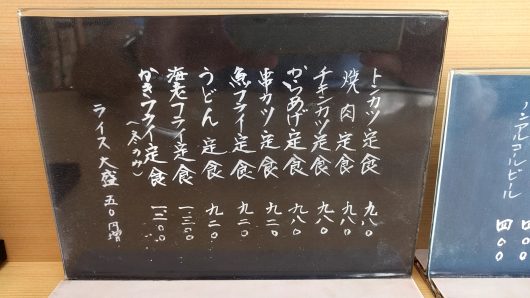 トンカツ定食 九八〇
焼肉定食 九八〇
チキンカツ定食 九八〇
からあげ定食 九八〇
串カツ定食 九二〇
魚フライ定食 九二〇
うどん定食 九二〇
海老フライ定食 一、三〇〇
かきフライ定食 一、二〇〇
(冬のみ)
ライス大盛 五〇円増
ノンアルコールビール 四〇〇
四〇〇